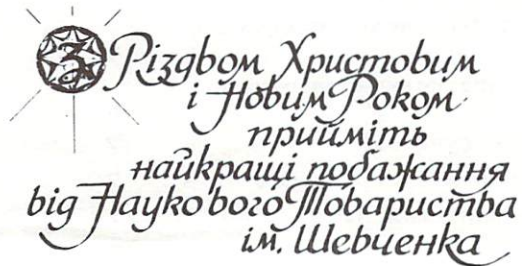 З Різдвом Христовим
і Новим Роком
прийміть
найкращі побажання
від Наукового Товариства
ім. Шевченка